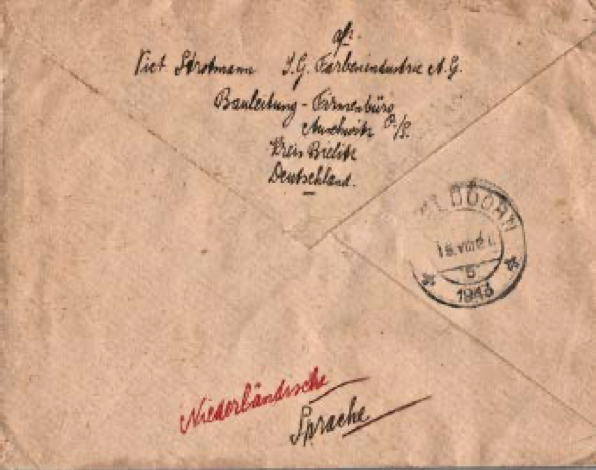 afz.
Piet Strotmann I.G. Farbenindustrie A.G.
Bauleitung - Firmenbüro
Auschwitz O/S.
Kreis Bielitz
Deutschland.
LDOORN
1943
Niederländische
Sprache